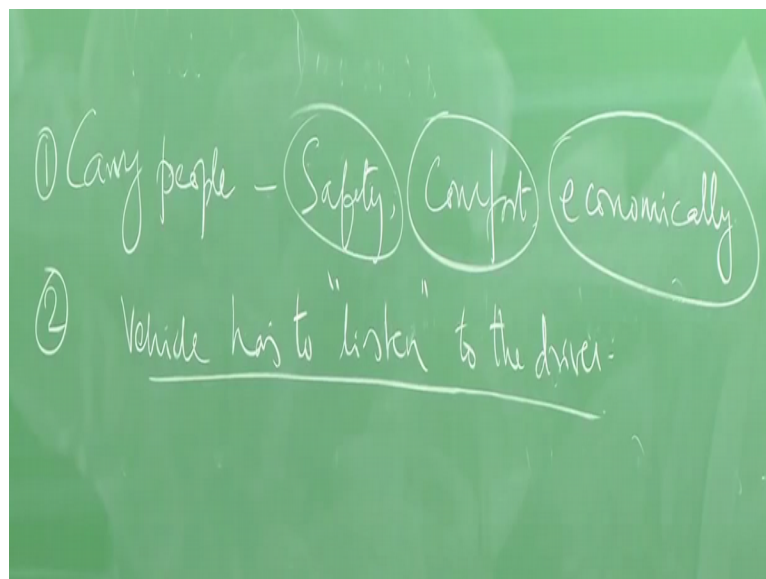 ① Carry people – Safety, Comfort, economically
② Vehicle has to "listen" to the driver.